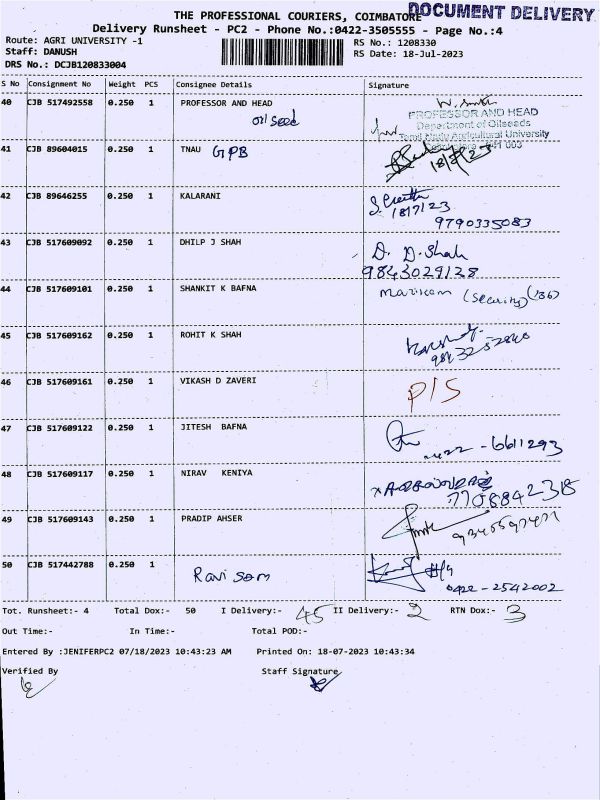 THE PROFESSIONAL COURIERS, COIMBATORE
DOCUMENT DELIVERY
Delivery Runsheet - PC2 - Phone No.:0422-3505555 - Page No.:4
Route: AGRI UNIVERSITY -1
RS No.: 1208330
Staff: DANUSH
RS Date: 18-Jul-2023
DRS No.: DCJB120833004
S No Consignment No Weight PCS Consignee Details Signature
40 CJB 517492558 0.250 1 PROFESSOR AND HEAD
oil seed
PROFESSOR AND HEAD
Department of Oilseeds
Tamil Nadu Agricultural University
41 CJB 89604015 0.250 1 TNAU GPB
18/7/23
42 CJB 89646255 0.250 1 KALARANI
18/7/23
9790335083
43 CJB 517609092 0.250 1 DHILP J SHAH D. D. Shah
9843029128
44 CJB 517609101 0.250 1 SHANKIT K BAFNA (Security) (136)
45 CJB 517609162 0.250 1 ROHIT K SHAH
46 CJB 517609161 0.250 1 VIKASH D ZAVERI P/S
47 CJB 517609122 0.250 1 JITESH BAFNA
- 6611293
48 CJB 517609117 0.250 1 NIRAV KENIYA
7708842318
49 CJB 517609143 0.250 1 PRADIP AHSER
50 CJB 517442788 0.250 1
Ravi Sam
0422-2542002
Tot. Runsheet:- 4 Total Dox:- 50 I Delivery:- 45 II Delivery:- 2 RTN Dox:- 3
Out Time:- In Time:- Total POD:-
Entered By :JENIFERPC2 07/18/2023 10:43:23 AM Printed On: 18-07-2023 10:43:34
Verified By Staff Signature